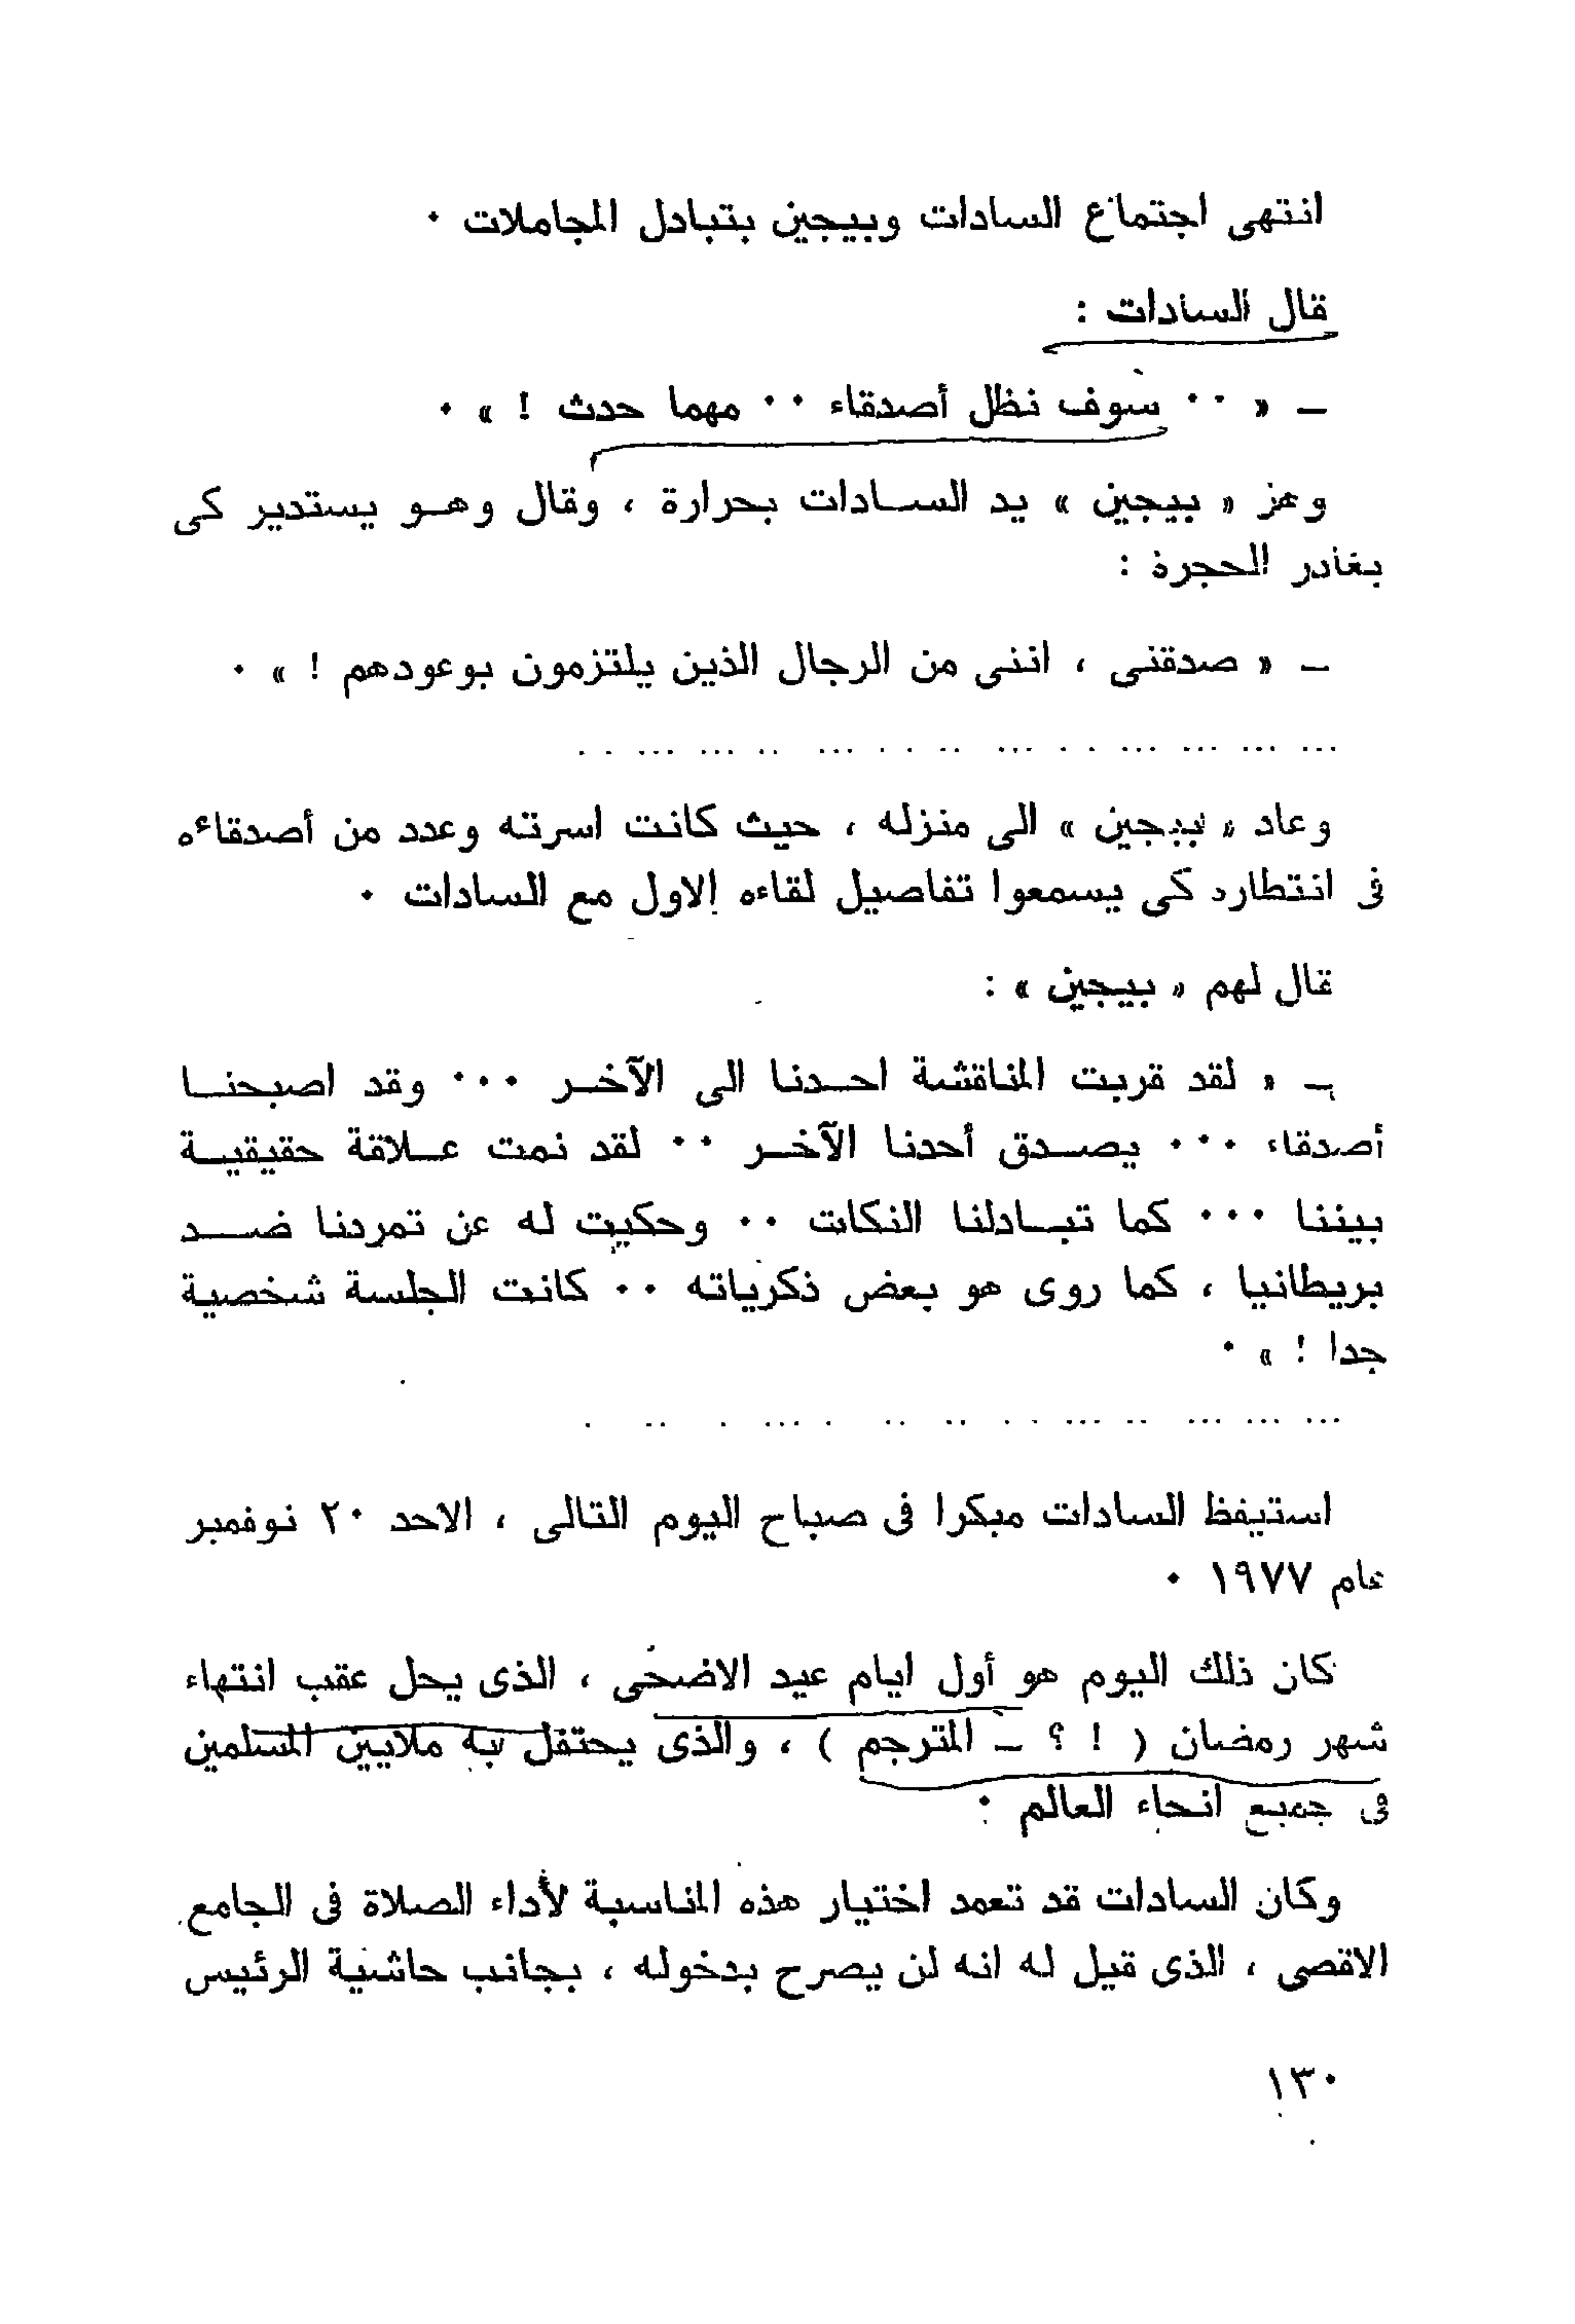 انتهى اجتماع السادات وبيجين بتبادل المجاملات ٠
قال السادات :
ـ « ٠٠ سوف نظل أصدقاء ٠٠ مهما حدث ! » ٠
وهز « بيجين » يد الســادات بحرارة ، وقال وهــو يستدير كى
يغادر الحجرة :
ـ « صدقنى ، اننى من الرجال الذين يلتزمون بوعودهم ! » ٠
... ... ... ... . . ... .. . . ... .. ... ... . .
وعاد « بيجين » الى منزله ، حيث كانت اسرته وعدد من أصدقاءه
فى انتظاره كى يسمعوا تفاصيل لقاءه الاول مع السادات ٠
قال لهم « بيجين » :
ـ « لقد قربت المناقشة احــدنا الى الآخــر ٠٠٠ وقد اصبحنــا
أصدقاء ٠٠٠ يصــدق أحدنا الآخــر ٠٠ لقد نمت عــلاقة حقيقيــة
بيننا ٠٠٠ كما تبــادلنا النكات ٠٠ وحكيت له عن تمردنا ضــــد
بريطانيا ، كما روى هو بعض ذكرياته ٠٠ كانت الجلسة شخصية
جدا ! » ٠
... ... ... .. ... . . .. .. . ... . .. .
استيقظ السادات مبكرا فى صباح اليوم التالى ، الاحد ٢٠ نوفمبر
عام ١٩٧٧ ٠
كان ذلك اليوم هو أول ايام عيد الاضحى ، الذى يحل عقب انتهاء
شهر رمضان ( ! ؟ ـ المترجم ) ، والذى يحتفل به ملايين المسلمين
فى جميع انحاء العالم :
وكان السادات قد تعمد اختيار هذه المناسبة لأداء الصلاة فى الجامع
الاقصى ، الذى قيل له انه لن يصرح بدخوله ، بجانب حاشية الرئيس
١٣٠